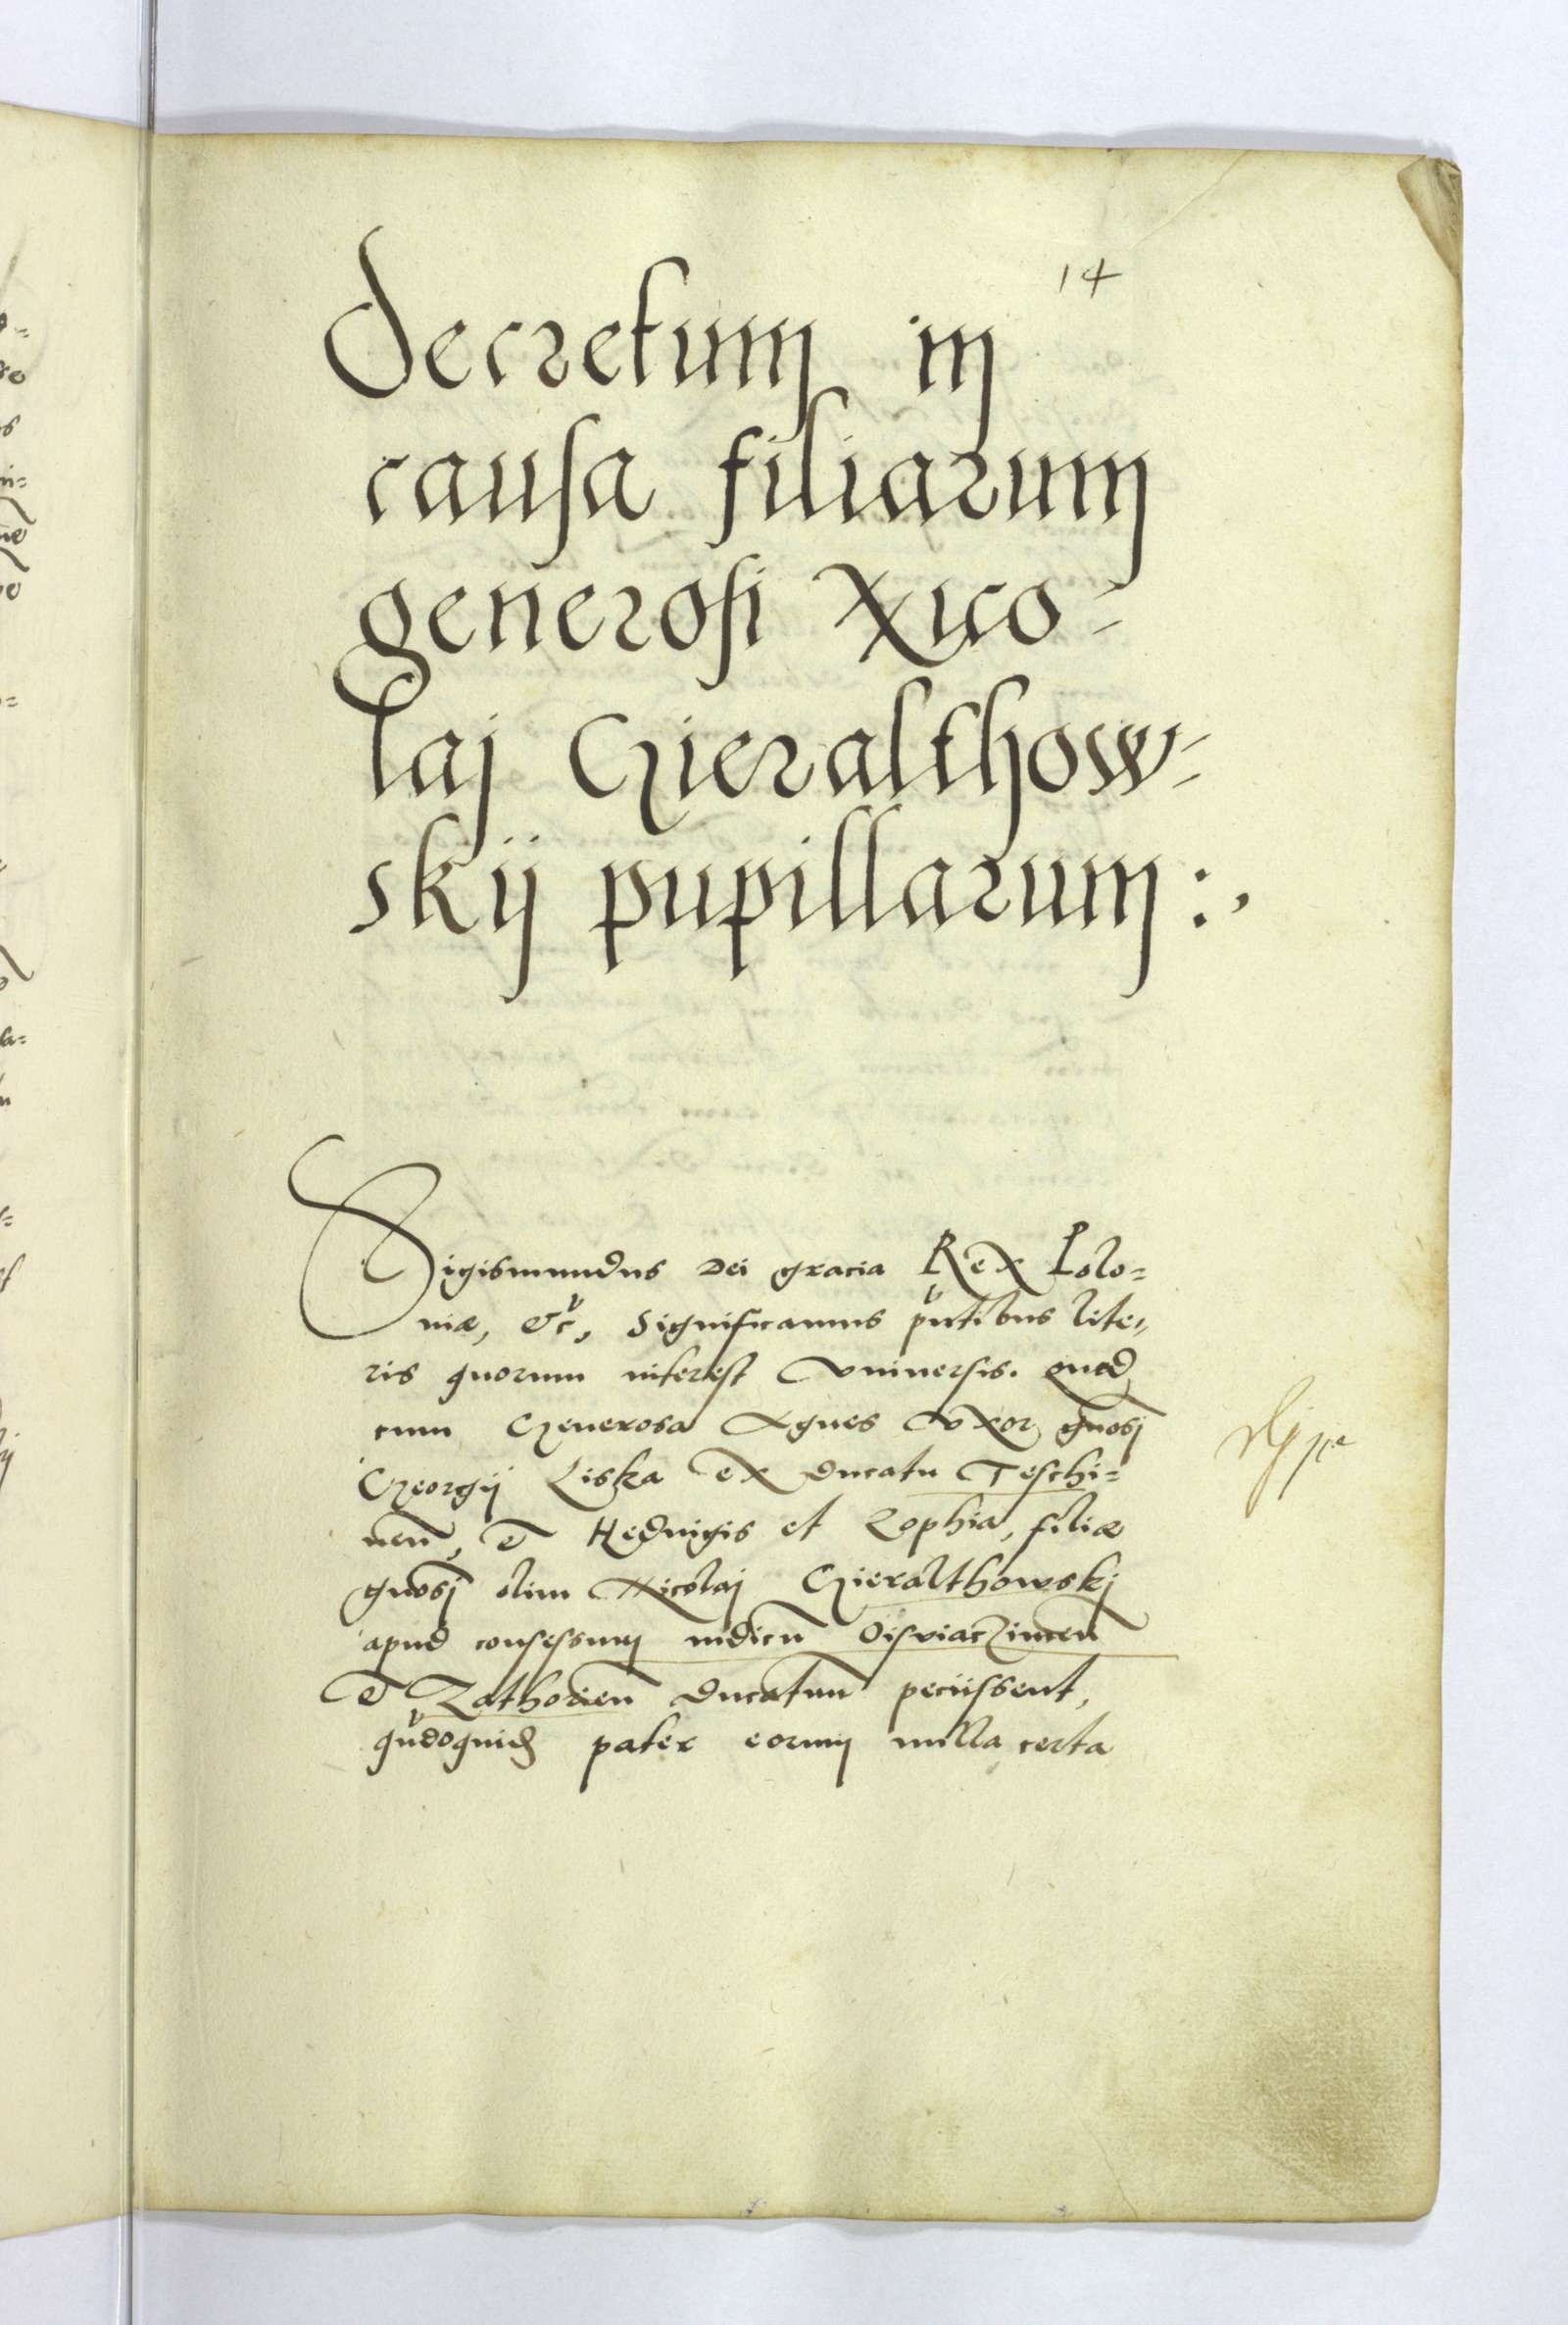 14
Decretum in
causa filiarum
generosi Nico=
laj Gieralthow=
skij pupillarum :,
Sigismundus Dei gracia Rex Polo=
niæ, &c, Significamus pñtibus lite„
ris quorum interest Vniuersis. quod
cum Generosa Agnes Vxor gñosj
Georgij Liska ex ducatu Teschi=
neñ, et Heduigis et Zophia, filiæ
gñosj olim Nicolaj Gieralthowskj
apud consessum iudicũ OsviacZimeñ
et Zathorieñ ducatuũ peciissent,
qũdoquidem pater eorum nulla certa